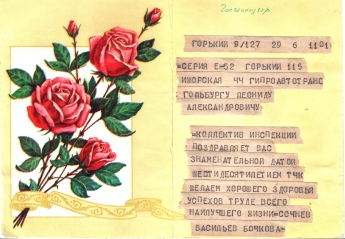 ГОРЬКИЙ 9/127 29 6 1101
=СЕРИЯ Е-52 ГОРЬКИЙ 115
ИЖОРСКАЯ ЧЧ ГИПРОАВТОТРАНС
ГОЛЬБУРГУ ЛЕОНИДУ
АЛЕКСАНДРОВИЧУ=
=КОЛЛЕКТИВ ИНСПЕКЦИИ
ПОЗДРАВЛЯЕТ ВАС
ЗНАМЕНАТЕЛЬНОЙ ДАТОЙ
ШЕСТИДЕСЯТИЛЕТИЕМ ТЧК
ЖЕЛАЕМ ХОРОШЕГО ЗДОРОВЬЯ
УСПЕХОВ ТРУДЕ ВСЕГО
НАИЛУЧШЕГО ЖИЗНИ=СОЧНЕВ
ВАСИЛЬЕВ БОЧКОВА=